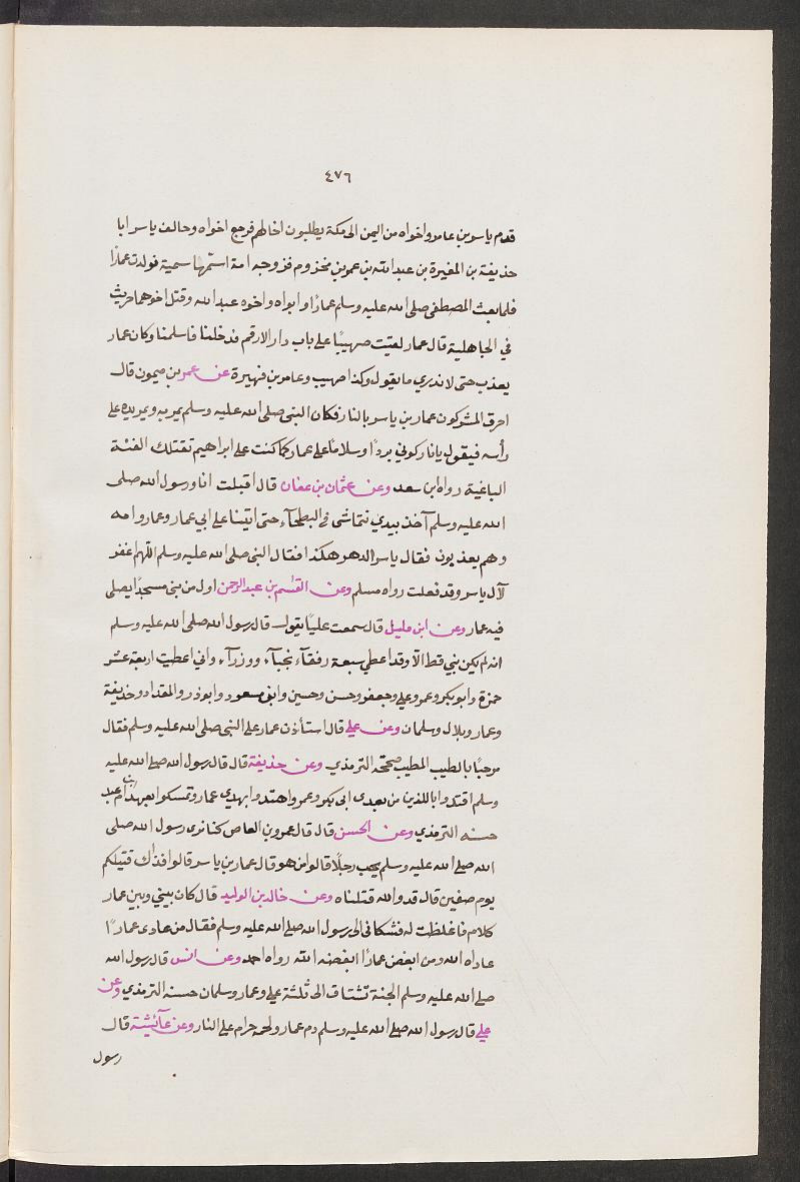 ٤٧٦
قدم ياسر بن عامر واخواه من اليمن الى مكة يطلبون اخا لهم فرجع اخواه وحالف ياسر ابا
حذيفة بن المغيرة بن عبد الله بن عمر بن مخزوم فزوجه امة اسمها سمية فولدت عمارًا
فلما بعث المصطفى صلى الله عليه وسلم عمارًا وابواه واخوه عبد الله وقتل اخوهما حريث
في الجاهلية قال عمار لقيت صهيبًا على باب دار الارقم فدخلنا فاسلمنا وكان عمار
يعذب حتى لا يدري ما يقول وكذا صهيب وعامر بن فهيرة عن عمر بن ميمون قال
احرق المشركون عمار بن ياسر بالنار فكان النبى صلى الله عليه وسلم يمر به ويمر يده على
رأسه فيقول يا نار كوني بردًا وسلامًا على عمار كما كنت على ابراهيم تقتلك الفئة
الباغية رواه ابن سعد وعن عثمان بن عفان قال اقبلت انا ورسول الله صلى
الله عليه وسلم آخذ بيدي نتماشى في البطحآء حتى اتينا على ابي عمار وعمار وامه
وهم يعذبون فقال ياسر الدهر هكذا فقال النبى صلى الله عليه وسلم اللهم اغفر
لآل ياسر وقد فعلت رواه مسلم وعن القسم بن عبد الرحمن اول من بنى مسجدًا يصلى
فيه عمار وعن ابن مليل قال سمعت عليًا يقول قال رسول الله صلى الله عليه وسلم
انه لم يكن نبي قط الا وقد اعطي سبعة رفقآء نجبآء ووزرآء واني اعطيت اربعة عشر
حمزة وابو بكر وعمر وعلي وجعفر وحسن وحسين وابن مسعود وابو ذر والمقداد وحذيفة
وعمار وبلال وسلمان وعن علي قال استأذن عمار على النبى صلى الله عليه وسلم فقال
مرحبًا بالطيب المطيب صححه الترمذي وعن حذيفة قال قال رسول الله صلى الله عليه
وسلم اقتدوا باللذين من بعدي ابى بكر وعمر واهتدوا بهدي عمار وتمسكوا بعهد ابن ام عبد
حسنه الترمذي وعن الحسن قال قال عمرو بن العاص كنا نرى رسول الله صلى
الله صلى الله عليه وسلم يحب رجلًا قالوا من هو قال عمار بن ياسر قالوا فذاك قتيلكم
يوم صفين قال قد والله قتلناه وعن خالد بن الوليد قال كان بيني وبين عمار
كلام فاغلظت له فشكانى الى رسول الله صلى الله عليه وسلم فقال من عادى عمارًا
عاداه الله ومن ابغض عمارًا ابغضه الله رواه احمد وعن انس قال رسول الله
صلى الله عليه وسلم الجنة تشتاق الى ثلثة علي وعمار وسلمان حسنه الترمذي وعن
علي قال رسول الله صلى الله عليه وسلم دم عمار ولحمه حرام على النار وعن عآئيشة قال
رسول